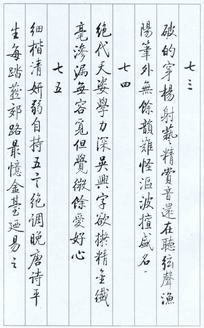 七三
破的穿楊射藝精賞音還在聽弦聲漁
陽筆外無餘韻雖怪漚波擅盛名
七四
絕代天姿學力深吳興字欲擬精金纖
毫滲漏無容覓但覺微餘愛好心
七五
細楷清妍弱自持五言絕調晚唐詩平
生每踏燕郊路最憶金臺迺易之